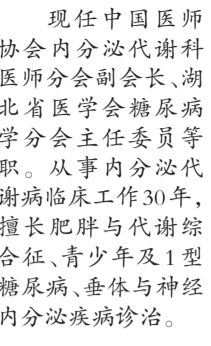 现任中国医师
协会内分泌代谢科
医师分会副会长、湖
北省医学会糖尿病
学分会主任委员等
职。从事内分泌代
谢病临床工作30年,
擅长肥胖与代谢综
合征、青少年及1型
糖尿病、垂体与神经
内分泌疾病诊治。